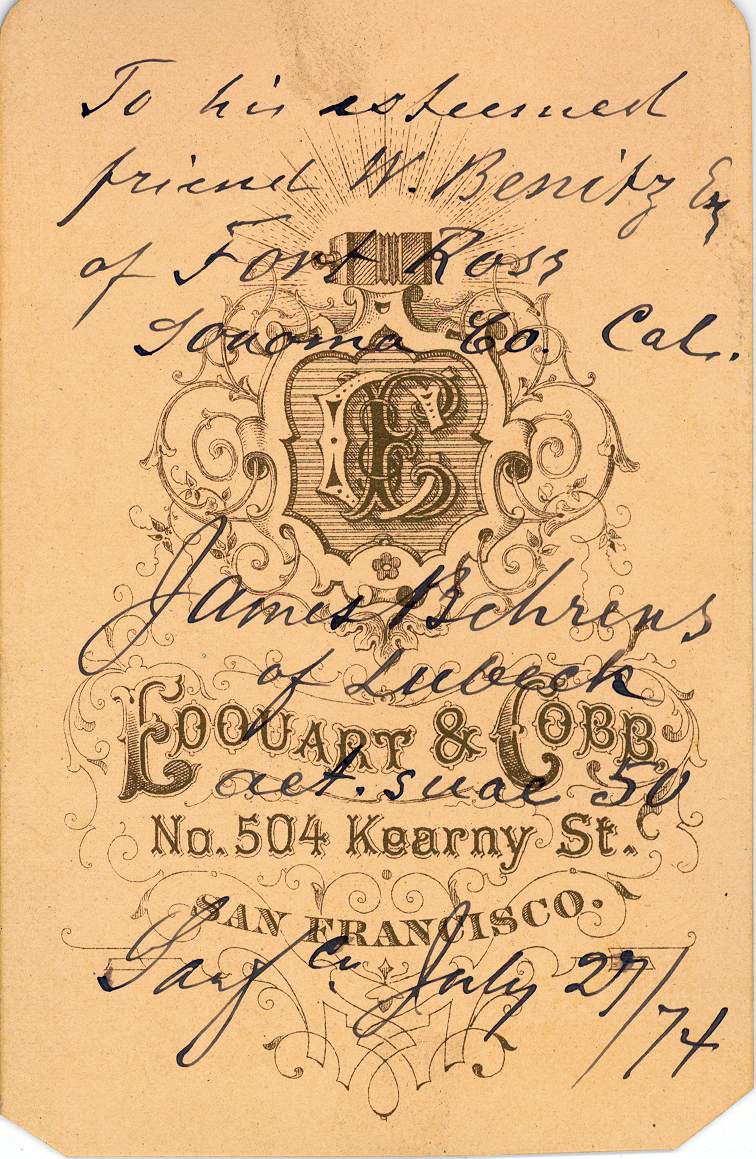 To his esteemed
friend W. Benitz Esq
of Fort Ross
Sonoma Co. Cal.
EC
James Behrens
of Lubeck
EDOUART & COBB.
aet. suae 50
No. 504 Kearny St.
SAN FRANCISCO.
July 27/74